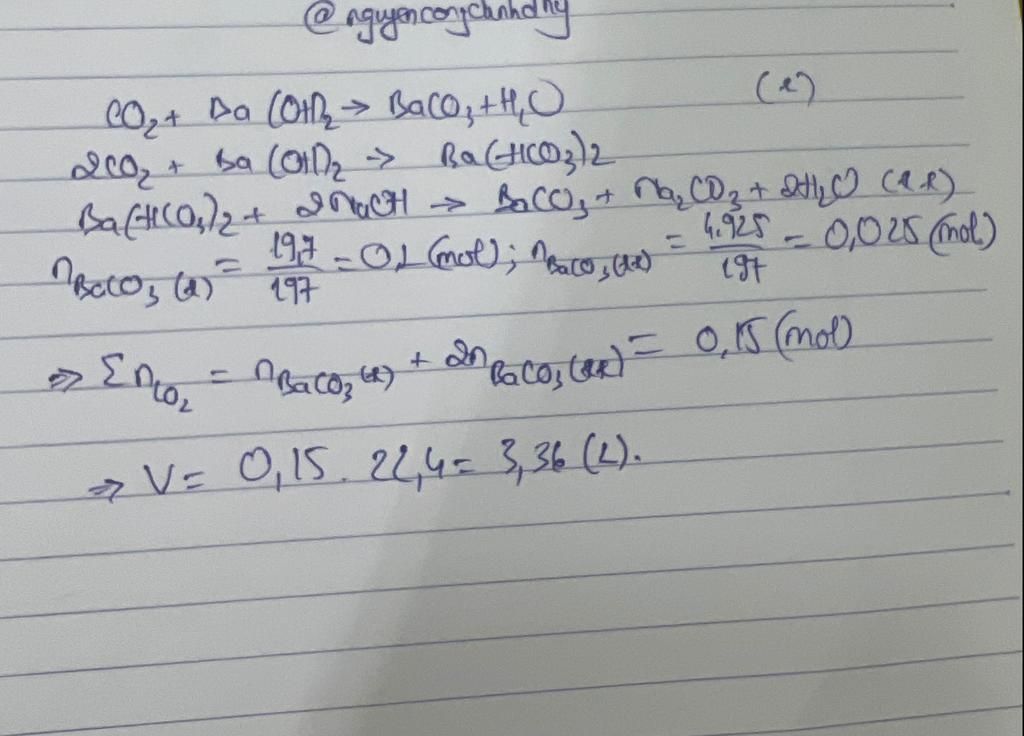 @nguyencongchanhdng
CO₂ + Ba(OH)₂ → BaCO₃ + H₂O (1)
2CO₂ + Ba(OH)₂ → Ba(HCO₃)₂
Ba(HCO₃)₂ + 2NaOH → BaCO₃ + Na₂CO₃ + 2H₂O (2)
n BaCO₃ (1) = 19,7/197 = 0,1 (mol); n BaCO₃ = 4.925/197 = 0,025 (mol)
⇒ Σn CO₂ = n BaCO₃ (1) + 2n BaCO₃ = 0,15 (mol)
⇒ V = 0,15 . 22,4 = 3,36 (L).